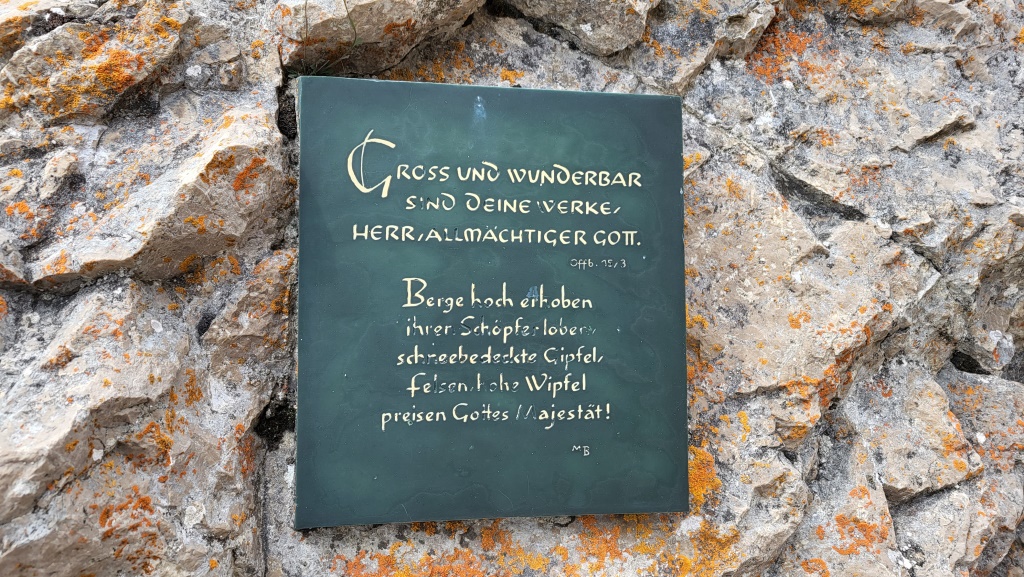 GROSS UND WUNDERBAR
SIND DEINE WERKE,
HERR, ALLMÄCHTIGER GOTT.
Offb. 15,3
Berge hoch erhoben
ihren Schöpfer loben,
schneebedeckte Gipfel,
Felsen, hohe Wipfel
preisen Gottes Majestät!
MB